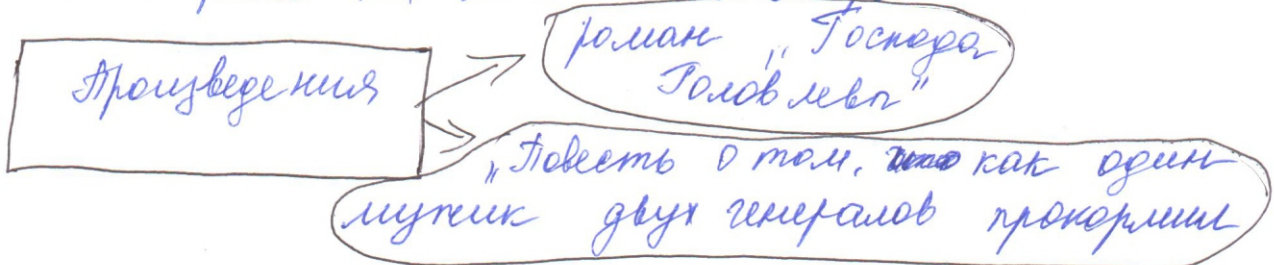 Произведения
роман „Господа
Головлевы"
„Повесть о том, как один
мужик двух генералов прокормил